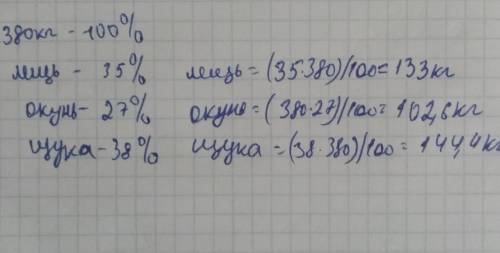 380кг - 100%
лещь - 35% лещь = (35·380)/100 = 133 кг
окунь - 27% окунь = (380·27)/100 = 102,6 кг
щука - 38% щука = (38·380)/100 = 144,4 кг